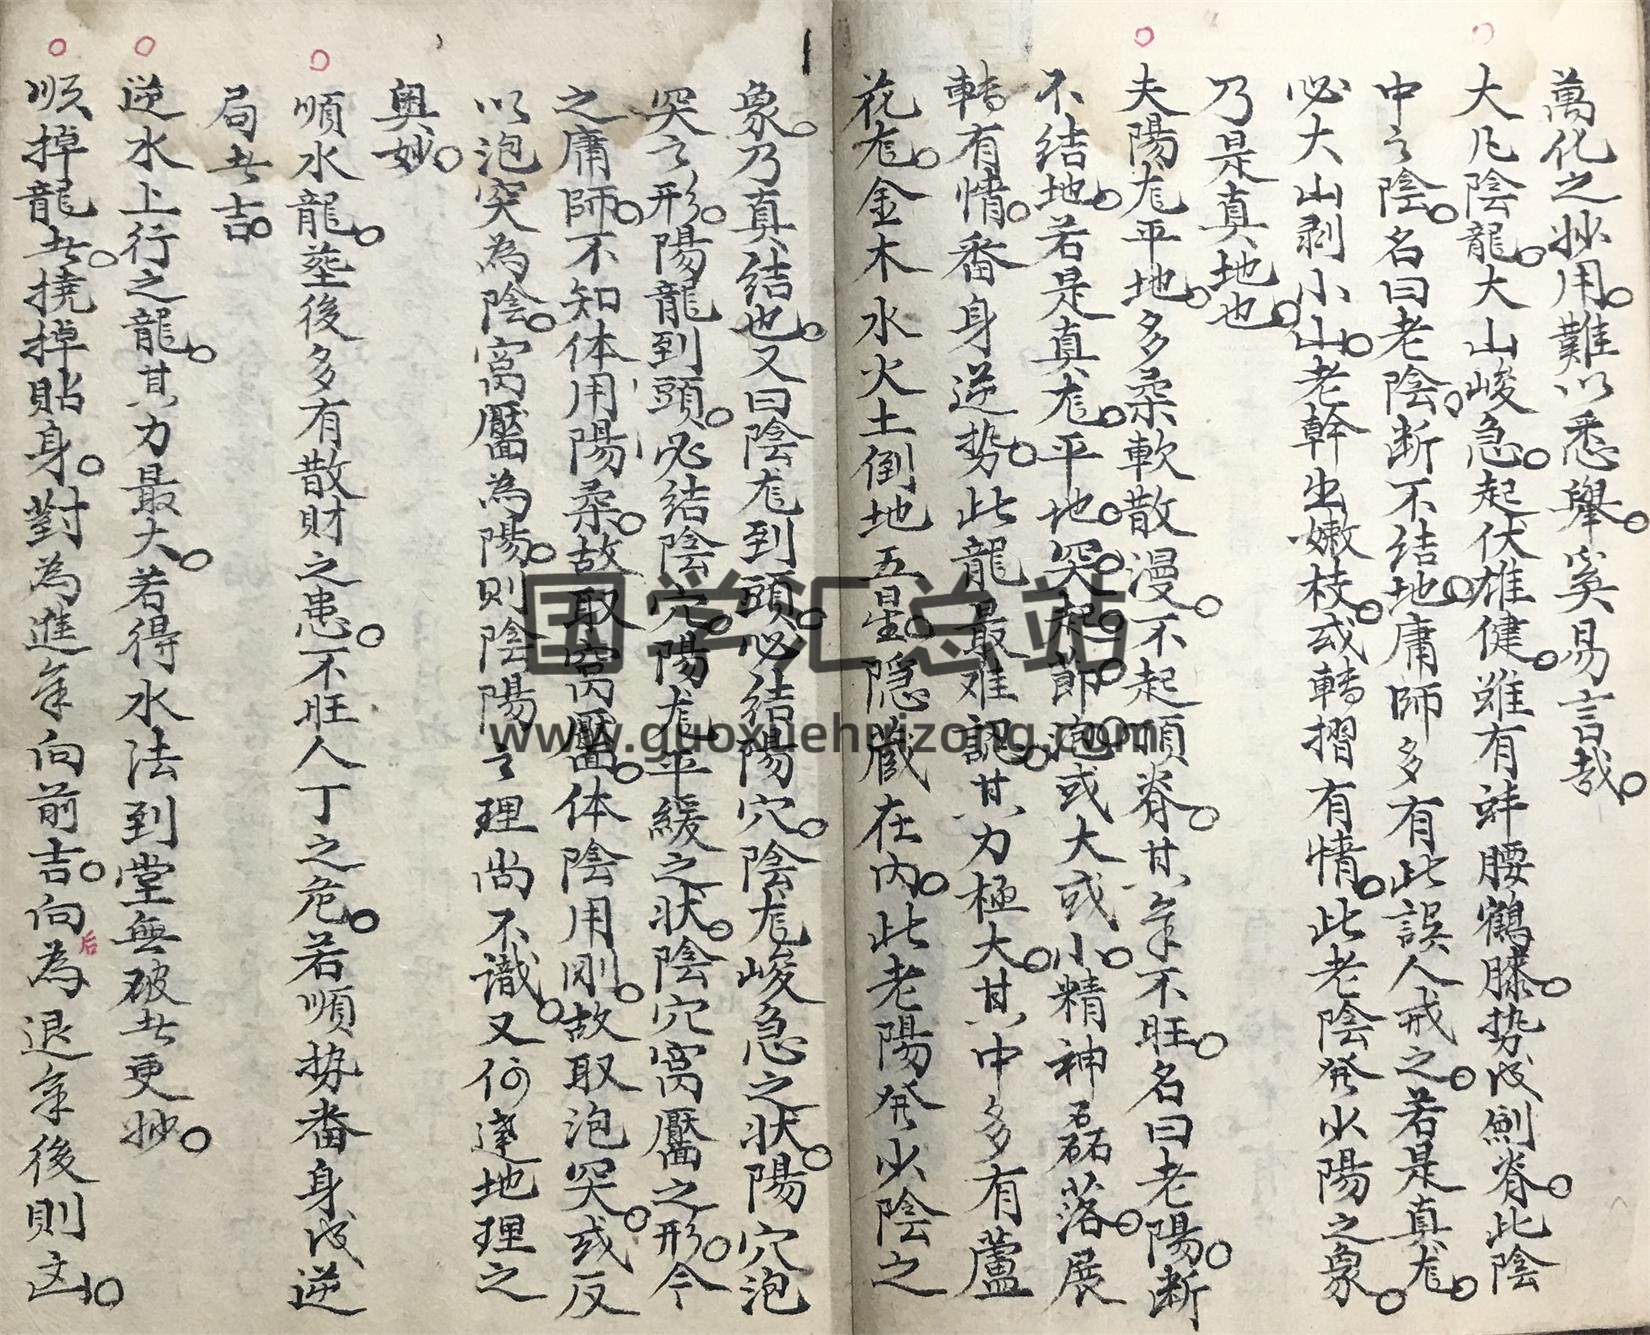 萬化之妙用。難以悉舉。奚易言哉。
大凡陰龍。大山峻急。起伏雄健。雖有蚌腰鶴膝。势成劍脊。此陰
中之陰。名曰老陰。断不结地。庸師多有此誤人戒之。若是真龙。
必大山剥小山。老幹出嫩枝。或轉摺有情。此老陰発少陽之象。
乃是真地也。
夫陽龙平地。多柔軟散漫。不起頂脊。其氣不旺。名曰老陽。断
不结地。若是真龙。平地。突起。節泡。或大或小。精神磊落。展
轉有情。番身逆势。此龍最难認。其力極大。其中多有蘆
花龙。金木水火土倒地五星。隠藏在内。此老陽発少陰之
象。乃真结也。又曰陰龙到頭。必结陽穴。陰龙峻急之状。陽穴泡
突之形。陽龍到頭。必结陰穴。陽龙平緩之状。陰穴窩靨之形。今
之庸師。不知体用陽柔。故取窩靨。体陰用刚。故取泡突。或反
以泡突為陰。窩靨為陽。则陰陽之理尚不識。又何達地理之
奥妙。
順水龍。塟後多有散財之患。不旺人丁之危。若順势番身成逆
局者吉。
逆水上行之龍。其力最大。若得水法到堂無破者更妙。
順掉龍者。撓掉貼身。對為進氣向前吉。向后為退氣後則凶。
国学汇总站
www.guoxuehuizong.com